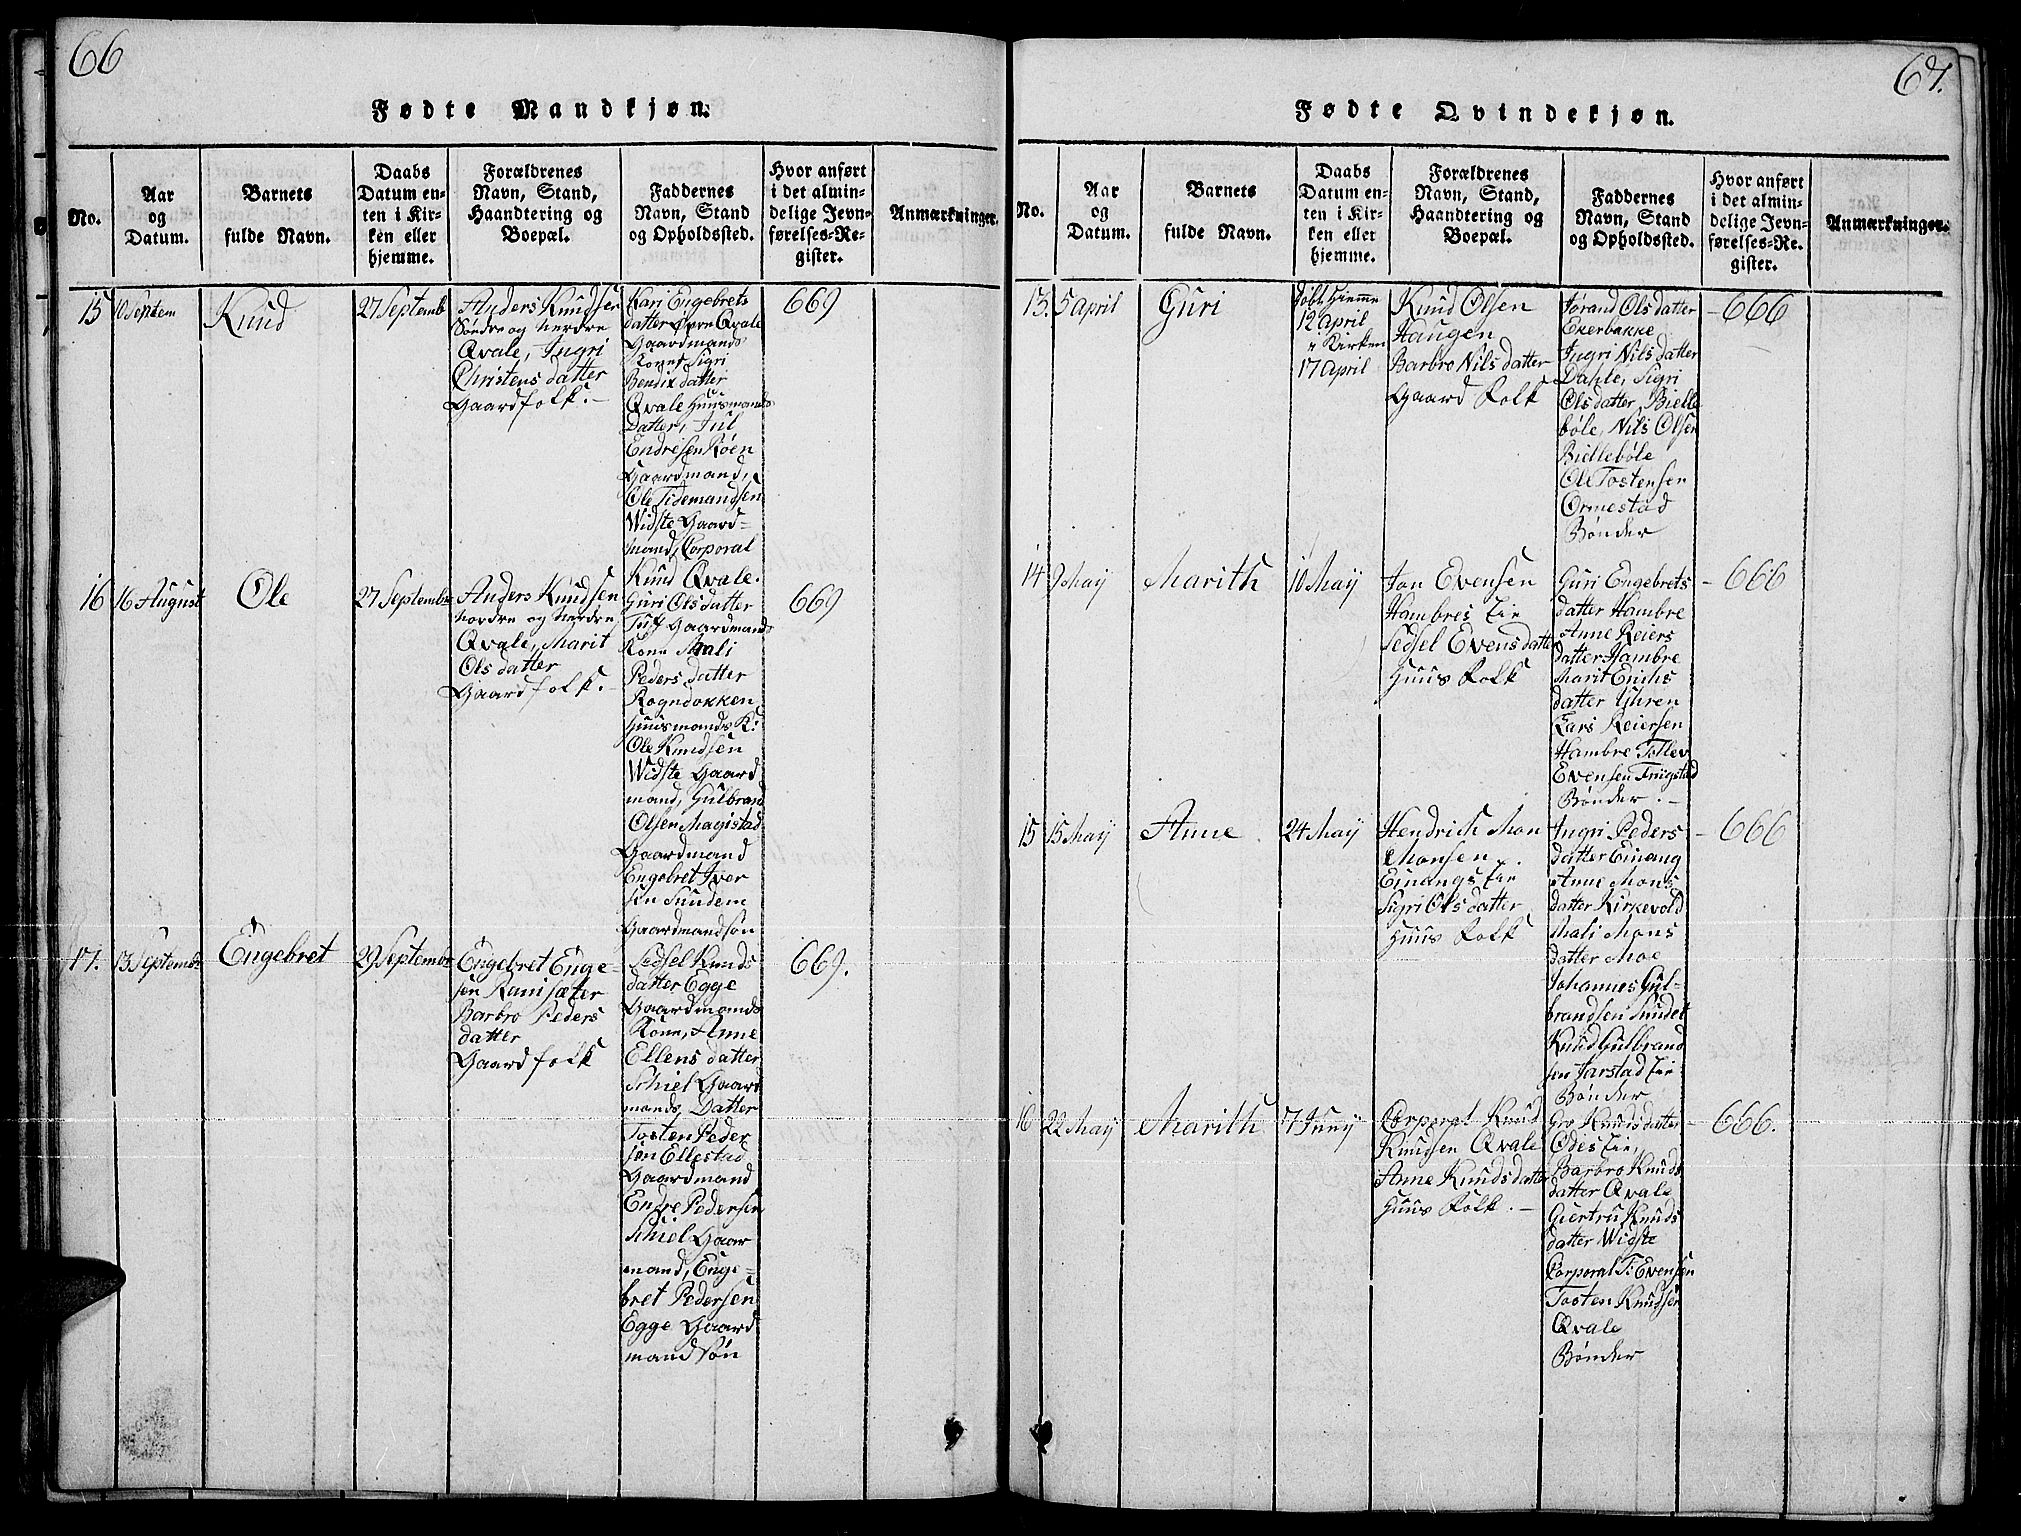 66
Fødte Mandkjøn.
No.
Aar
og
Datum.
Barnets
fulde Navn.
Daabs
Datum en-
ten i Kir-
ken eller
hjemme.
Forældrenes
Navn, Stand,
Haandtering og
Boepæl.
Faddernes
Navn, Stand
og Opholdssted.
Hvor anført
i det almin-
delige Jevn-
førelses-Re-
gister.
Anmærkninger.
15
10 Septem
Knud
27 Septemb
Anders Knudsen
Søndre og nerdre
Qvale, Ingri
Christens datter
Gaardfolk. -
Kari Engebrets
datter Øvre Qvale
Gaardmands
Kone, Sigri
Bendix datter
Qvale Huusmands
Datter, Jul
Endresen Røen
Gaardmand,
Ole Tidemandsen
Widste Gaard-
mand, Corporal
Knud Qvale.
669
16
16 August
Ole
27 Septembr
Anders Knudsen
nordre og nerdre
Qvale, Marit
Ols datter
Gaardfolk. -
Guri Ols datter
Tuf Gaardmands
Kone Mali
Peders datter
Rogndokken
Huusmands K:
Ole Knudsen
Widste Gaard
mand, Gulbrand
Olsen Magistad
Gaardmand
Engebret Iver
sen Sundem
Gaardmandsøn
669
17.
13 Septembr
Engebret
29 Septembr
Engebret Enge-
sen Ranisæter
Barbro Peders
datter
Gaardfolk
Sedsel Knuds
datter Egge
Gaardmands
Kone, Anne
Ellens datter
Schiel Gaard
mands Datter
Tosten Peder
sen Ellestad
Gaardmand
Endre Pedersen
Schiel Gaar
mand, Enge-
bret Pedersen
Egge Gaard
mandsøn
669.
67.
Fødte Qvindekjøn.
No.
Aar
og
Datum.
Barnets
fulde Navn.
Daabs
Datum en-
ten i Kir-
ken eller
hjemme.
Forældrenes
Navn, Stand,
Haandtering og
Boepæl.
Faddernes
Navn, Stand
og Opholdssted.
Hvor anført
i det almin-
delige Jevn-
førelses-Re-
gister.
Anmærkninger.
13.
5 april
Guri
døbt Hiemme
12 April
i Kirken
17 April
Knud Olsen
Haugen
Barbro Nils datter
Gaard Folk
Jørand Ols datter
Ekerbakke
Ingri Nils datter
Dahle, Sigri
Ols datter, Bielle
bøle, Nils Olsen
Biellebøle
Ole Tostensen
Ormestad
Bønder
- 666
14
9 May
Marith
10 May
Jon Evensen
Hambres Eie
Sedsel Evens datter
Huus Folk
Guri Engebrets
datter Hambre
Anne Reiers
datter Hambre
Marit Erichs
datter Yhren
Lars Reiersen
Hambre Tollev
Evensen Trugstad
Bønder. -
- 666
15
15 May
Anne
24 May
Hendrich Mon
Monsen
Einangs Eie
Sigri Ols datter
Huus Folk
Ingri Peders
datter Einang
Anne Mons
datter Kirkevold
Mali Mons
datter Moe
Johannes Gul-
brandsen Sundet
Knud Gulbrand
sen Jarstad Eie
Bønder
- 666
16
22 May
Marith
7 Juny
Corporal Knud
Knudsen Qvale
Anne Knuds datter
Huus Folk. -
Gro Knuds datter
Ødes Eie,
Barbro Knuds
datter Qvale
Giertru Knuds
datter Widste
Corporal T: Evensen
Tosten Knudsen
Qvale
Bønder
- 666.